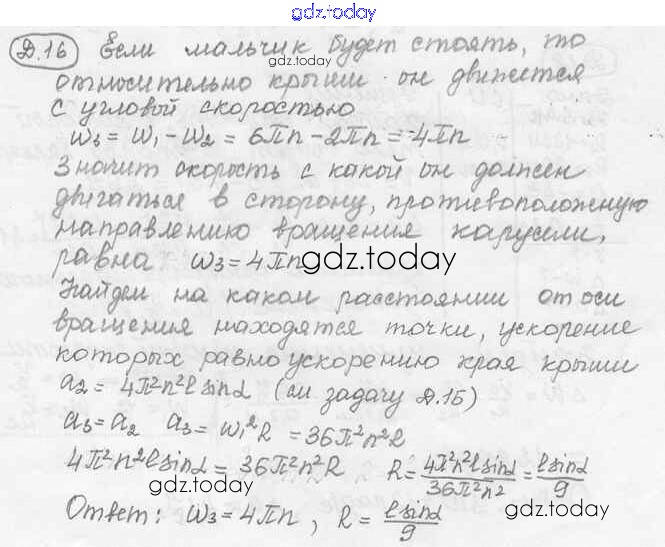 gdz.today
Д.16 Если мальчик будет стоять, то
gdz.today
относительно крыши он движется
с угловой скоростью
ω₃ = ω₁ - ω₂ = 6πn - 2πn = 4πn
Значит скорость с какой он должен
двигаться в сторону, противоположную
направлению вращения карусели,
равна ω₃ = 4πn
gdz.today
Найдем на каком расстоянии от оси
вращения находятся точки, ускорение
которых равно ускорению края крыши
a₂ = 4π²n²l sinα (см задачу Д.15)
a₃ = a₂ a₃ = ω₁²R = 36π²n²R
4π²n²l sinα = 36π²n²R R = 4π²n²l sinα / 36π²n² = l sinα / 9
gdz.today
Ответ: ω₃ = 4πn, R = l sinα / 9
gdz.today